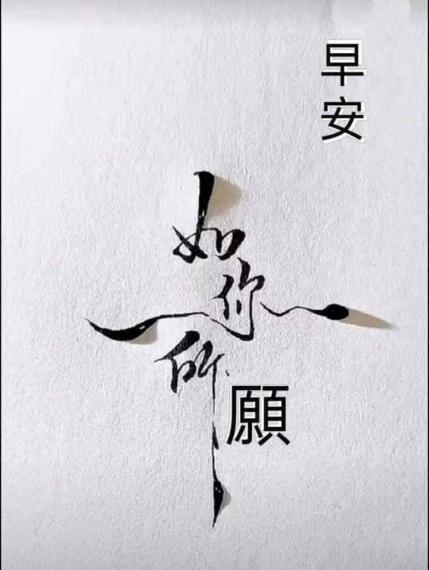 早安
如你所願